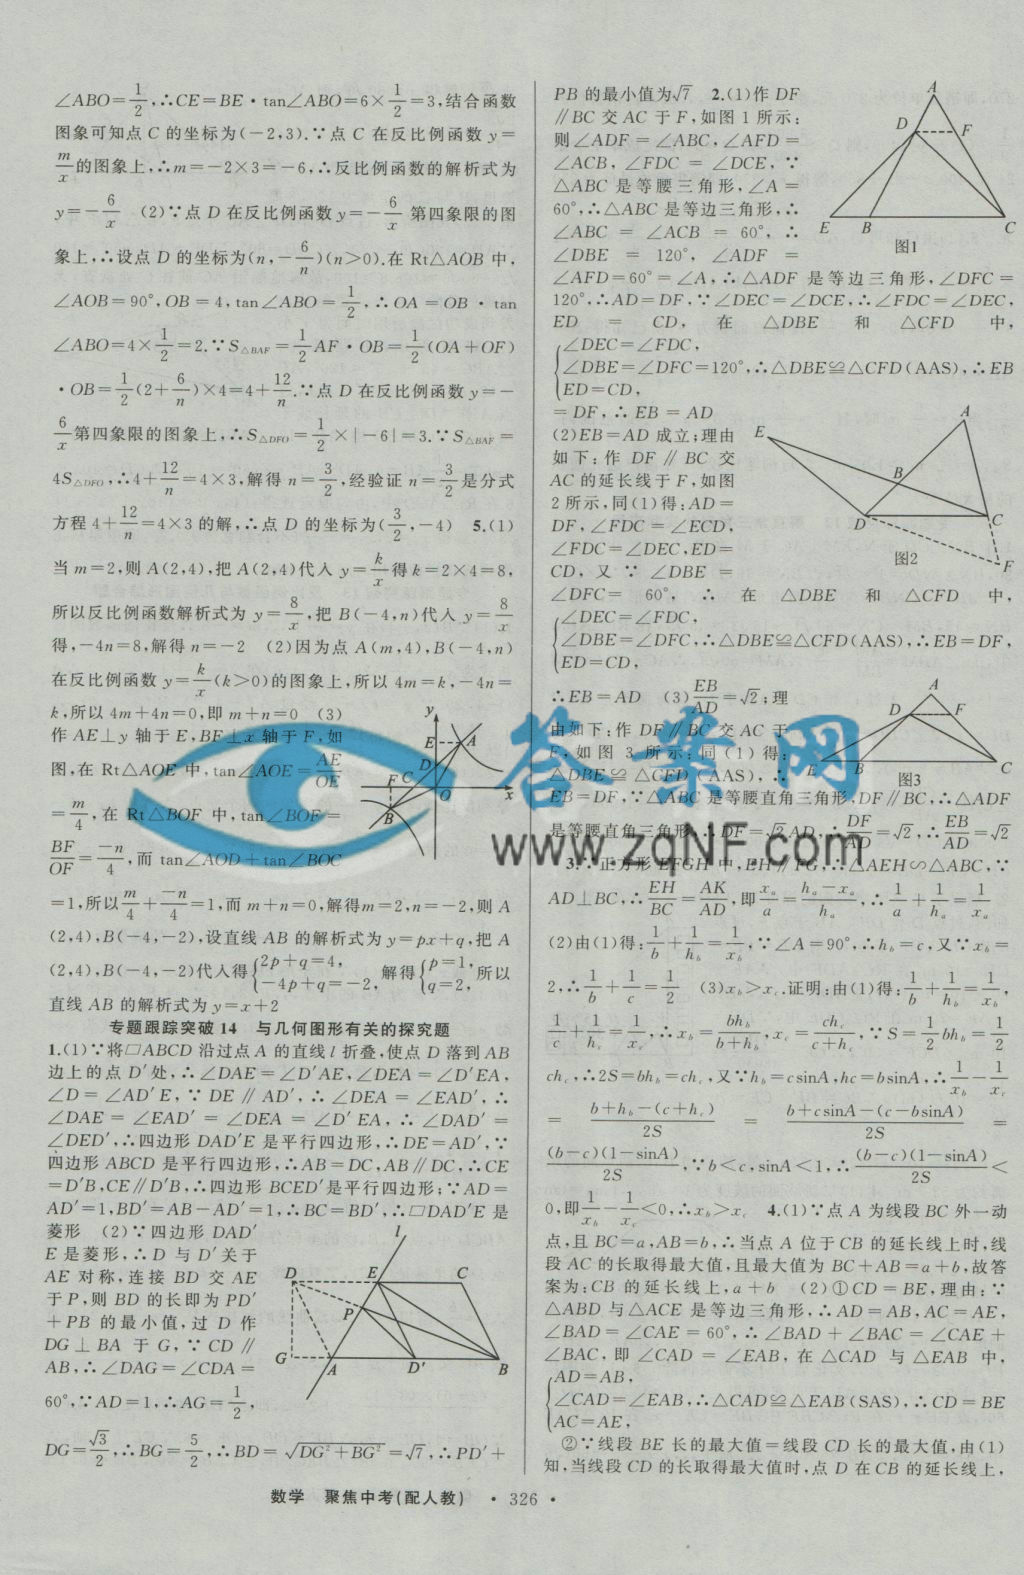 ∠ABO=1/2,∴CE=BE·tan∠ABO=6×1/2=3,结合函数
图象可知点 C 的坐标为(-2,3).∵点 C 在反比例函数 y=
m/x的图象上,∴m=-2×3=-6,∴反比例函数的解析式为
y=-6/x (2)∵点 D 在反比例函数 y=-6/x 第四象限的图
象上,∴设点 D 的坐标为(n,-6/n)(n>0).在 Rt△AOB 中,
∠AOB=90°,OB=4,tan∠ABO=1/2,∴OA=OB·tan
∠ABO=4×1/2=2.∵S△BAF=1/2AF·OB=1/2(OA+OF)
·OB=1/2(2+6/n)×4=4+12/n.∵点 D 在反比例函数 y=-
6/x第四象限的图象上,∴S△DFO=1/2×|-6|=3.∵S△BAF=
4S△DFO,∴4+12/n=4×3,解得 n=3/2,经验证 n=3/2是分式
方程 4+12/n=4×3 的解,∴点 D 的坐标为(3/2,-4) 5.(1)
当 m=2,则 A(2,4),把 A(2,4)代入 y=k/x得 k=2×4=8,
所以反比例函数解析式为 y=8/x,把 B(-4,n)代入 y=8/x
得,-4n=8,解得 n=-2 (2)因为点 A(m,4),B(-4,n)
在反比例函数 y=k/x(k>0)的图象上,所以 4m=k,-4n=
k,所以 4m+4n=0,即 m+n=0 (3)
作 AE⊥y 轴于 E,BF⊥x 轴于 F,如
图,在 Rt△AOE 中,tan∠AOE=AE/OE
=m/4,在 Rt△BOF 中,tan∠BOF=
BF/OF=-n/4,而 tan∠AOD+tan∠BOC
=1,所以m/4+-n/4=1,而 m+n=0,解得m=2,n=-2,则 A
(2,4),B(-4,-2),设直线 AB 的解析式为 y=px+q,把 A
(2,4),B(-4,-2)代入得{2p+q=4, -4p+q=-2, 解得{p=1, q=2, 所以
直线 AB 的解析式为 y=x+2
y
E
A
D
F
C
O
x
B
专题跟踪突破 14 与几何图形有关的探究题
1.(1)∵将□ABCD 沿过点 A 的直线 l 折叠,使点 D 落到 AB
边上的点 D′处,∴∠DAE=∠D′AE,∠DEA=∠D′EA,
∠D=∠AD′E,∵DE∥AD′,∴∠DEA=∠EAD′,∴
∠DAE=∠EAD′=∠DEA=∠D′EA,∴∠DAD′=
∠DED′,∴四边形 DAD′E 是平行四边形,∴DE=AD′,∵
四边形 ABCD 是平行四边形,∴AB=DC,AB∥DC,∴CE
=D′B,CE∥D′B,∴四边形 BCED′是平行四边形;∵AD=
AD′=1,BD′=AB-AD′=1,∴BC=BD′,∴□DAD′E 是
菱形 (2)∵四边形 DAD′
E 是菱形,∴D 与 D′关于
AE 对称,连接 BD 交 AE
于 P,则 BD 的长即为 PD′
+PB 的最小值,过 D 作
DG⊥BA 于 G,∵CD∥
AB,∴∠DAG=∠CDA=
60°,∵AD=1,∴AG=1/2,
DG=√3/2,∴BG=5/2,∴BD=√DG²+BG²=√7,∴PD′+
l
D
E
C
P
G
A
D′
B
PB 的最小值为√7 2.(1)作 DF
∥BC 交 AC 于 F,如图 1 所示:
则∠ADF=∠ABC,∠AFD=
∠ACB,∠FDC=∠DCE,∵
△ABC 是等腰三角形,∠A=
60°,∴△ABC 是等边三角形,∴
∠ABC=∠ACB=60°,∴
∠DBE=120°,∠ADF=
∠AFD=60°=∠A,∴△ADF 是等边三角形,∠DFC=
120°,∴AD=DF,∵∠DEC=∠DCE,∴∠FDC=∠DEC,
ED = CD, 在 △DBE 和 △CFD 中,
∠DEC=∠FDC,
∠DBE=∠DFC=120°,∴△DBE≌△CFD(AAS),∴EB
ED=CD,
=DF,∴EB=AD
A
D
F
E
B
C
图1
(2)EB=AD 成立;理由
如下:作 DF∥BC 交
AC 的延长线于 F,如图
2 所示,同(1)得:AD=
DF,∠FDC=∠ECD,
∠FDC=∠DEC,ED=
CD,又∵∠DBE=
∠DFC=60°,∴在△DBE 和△CFD 中,
∠DEC=∠FDC,
∠DBE=∠DFC,∴△DBE≌△CFD(AAS),∴EB=DF,
ED=CD,
E
A
B
D
C
F
图2
∴EB=AD (3)EB/AD=√2;理
由如下:作 DF∥BC 交 AC 于
F,如图 3 所示:同(1)得:
△DBE≌△CFD(AAS),∴
EB=DF,∵△ABC 是等腰直角三角形,DF∥BC,∴△ADF
是等腰直角三角形,∴DF=√2AD,∴DF/AD=√2,∴EB/AD=√2
A
D
F
C
图3
3.∵正方形 EFGH 中,EH∥FG,∴△AEH∽△ABC,∵
AD⊥BC,∴EH/BC=AK/AD,即xₐ/a=(hₐ-xₐ)/hₐ,∴1/a+1/hₐ=1/xₐ
(2)由(1)得:1/b+1/h_b=1/x_b,∵∠A=90°,∴h_b=c,又∵x_b=
2,∴1/b+1/c=1/2 (3)x_b>x_c.证明:由(1)得:1/b+1/h_b=1/x_b,
1/c+1/h_c=1/x_c,∴x_b=bh_b/(b+h_b),x_c=ch_c/(c+h_c),∵S=1/2bh_b=1/2
ch_c,∴2S=bh_b=ch_c,又∵h_b=csinA,hc=bsinA,∴1/x_b-1/x_c
=(b+h_b-(c+h_c))/2S=(b+csinA-(c-bsinA))/2S=
(b-c)(1-sinA)/2S,∵b<c,sinA<1,∴(b-c)(1-sinA)/2S<
0,即1/x_b-1/x_c<0,∴x_b>x_c 4.(1)∵点 A 为线段 BC 外一动
点,且 BC=a,AB=b,∴当点 A 位于 CB 的延长线上时,线
段 AC 的长取得最大值,且最大值为 BC+AB=a+b,故答
案为:CB 的延长线上,a+b (2)①CD=BE,理由:∵
△ABD 与△ACE 是等边三角形,∴AD=AB,AC=AE,
∠BAD=∠CAE=60°,∴∠BAD+∠BAC=∠CAE+
∠BAC,即∠CAD=∠EAB,在△CAD 与△EAB 中,
AD=AB,
∠CAD=∠EAB,∴△CAD≌△EAB(SAS),∴CD=BE
AC=AE,
②∵线段 BE 长的最大值=线段 CD 长的最大值,由(1)
知,当线段 CD 的长取得最大值时,点 D 在 CB 的延长线上,
答案网
www.zqNF.com
数学 聚焦中考(配人教) ·326·